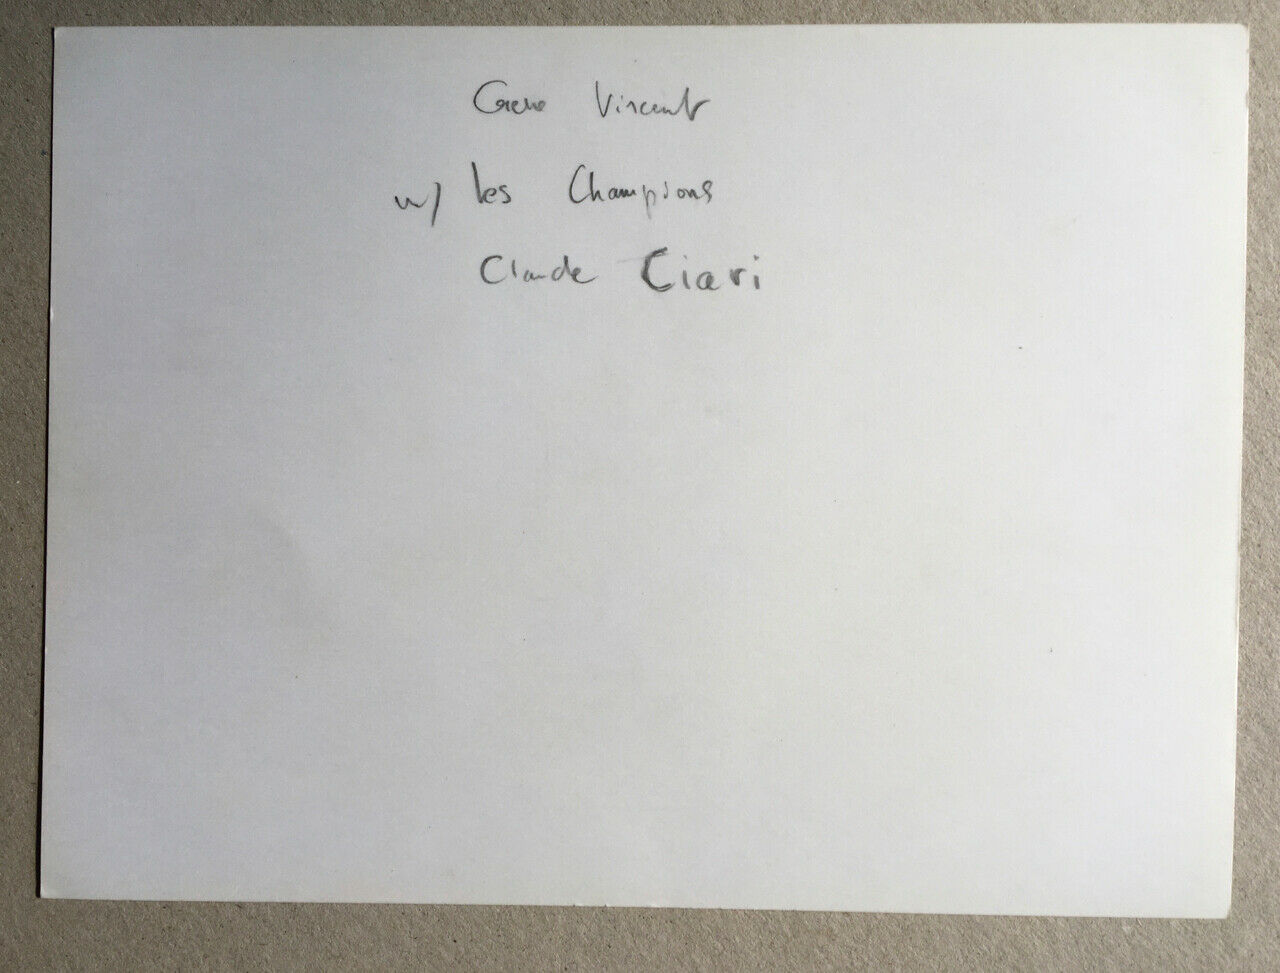 Gene Vincent
w/ les Champions
Claude Ciari